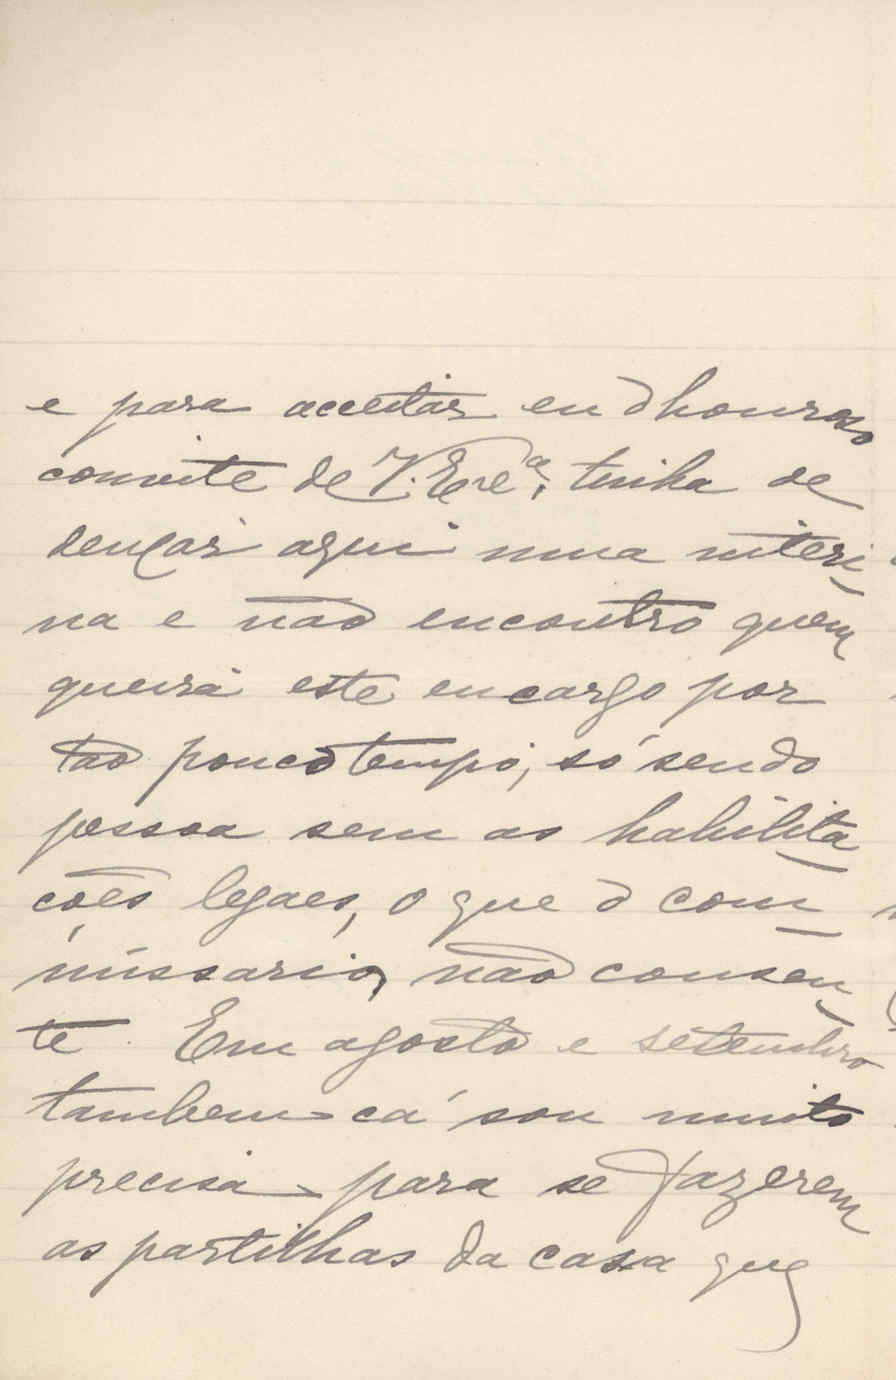 e para acceitar eu o honroso
convite de V. Exc.ª, tinha de
deixar aqui uma interi-
na e não encontro quem
queira este encargo por
tão pouco tempo, só sendo
pessoa sem as habilita-
cões legaes, o que o com-
missario, não consen-
te. Em agosto e setembro
tambem cá sou muito
precisa para se fazerem
as partilhas da casa que